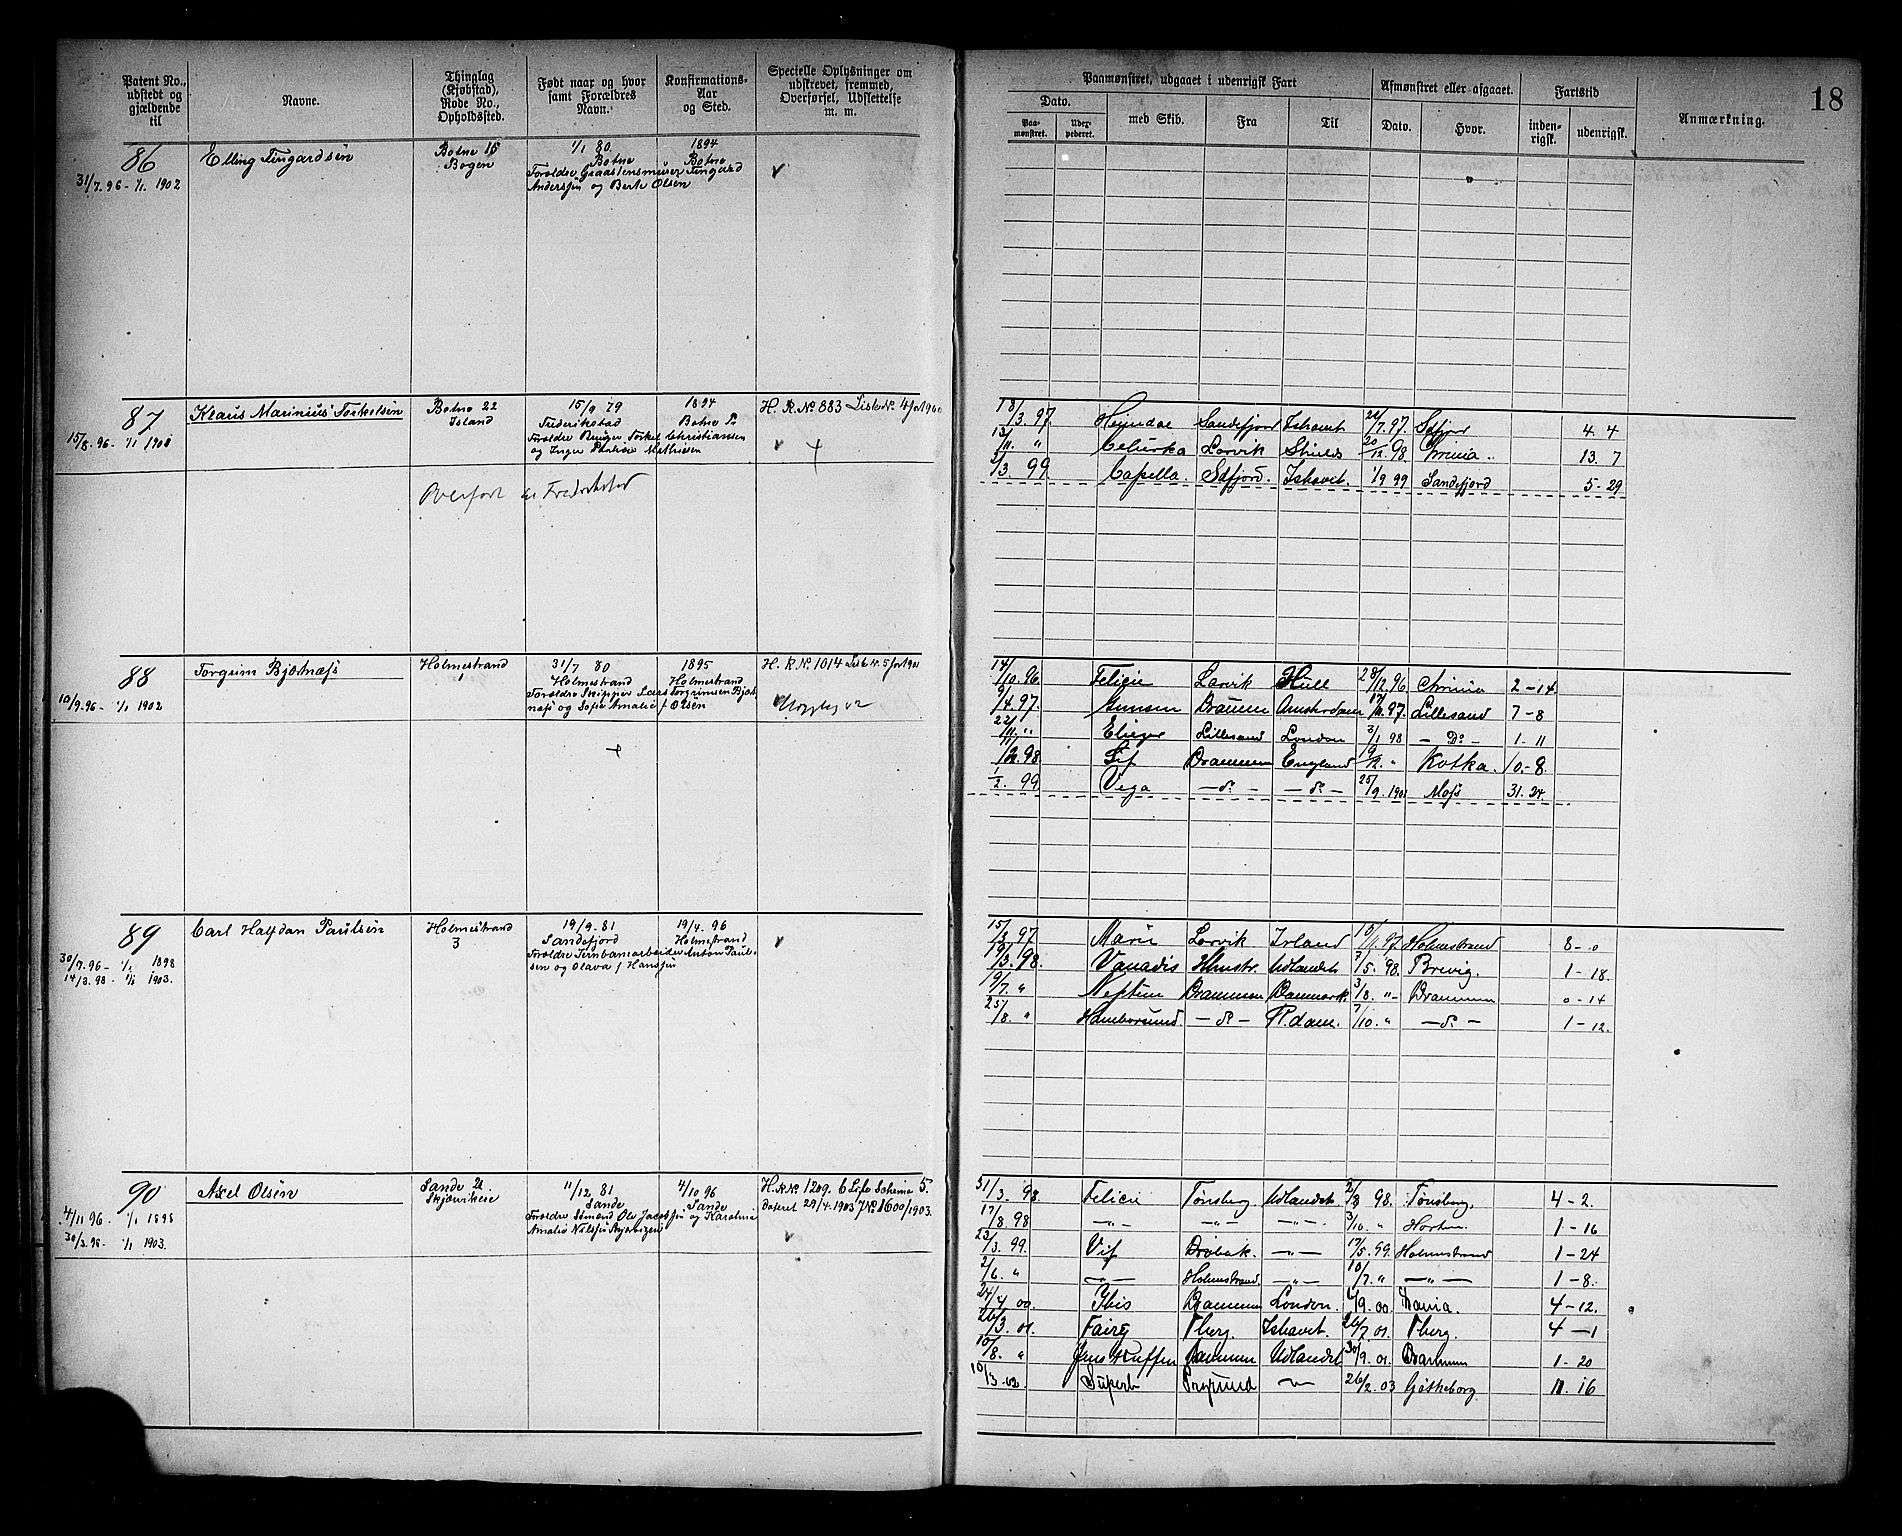 18
Patent No., udstedt og gjældende til
Navne.
Thinglag (Kjøbstad), Rode No., Opholdssted.
Født naar og hvor samt Forældres Navn.
Konfirmations-Aar og Sted.
Specielle Oplysninger om udstrevet, fremmed, Overførsel, Udslettelse m. m.
Paamønstret, udgaaet i udenrigsk Fart
Afmønstret eller afgaaet.
Fartstid
Anmærkning.
Dato.
Paa-mønstret.
med Skib.
Fra
Til
Dato.
Hvor.
inden-rigsk.
udenrigsk.
86 Elling Fingardsen Botne 15 1/1 80. 1894
31/7.96 - 1/1 1902 Bogen Botne Botne
Forældre Graastensmurer Fingard
Anderssen og Berte Olsen
87 Klaus Marinius Torkelsen Botne 22 15/9 79 1894 H. R. No 883 Liste No. 4 for 1900
15/8.96 - 1/1 1901 Island Frederikstad Botne
Torkel Christiansen
og Inger Mathisen
Overført til Fredrikstad
18/3.97. Sandefjord Ishavet 21/7.97. Sdfjord 4. 4
Larvik Shields 20/12.98 13. 7
2/3 99 Capella. Sdfjord. Ishavet. 1/9 99 Sandefjord 5 - 29
88 Torgrim Bjotnæss Holmestrand 31/7 80 1895 H. R. No 1014 Liste No. 5 for 1901
10/9.96 - 1/1 1902 Holmestrand Holmestrand
Forældre Skipper Lars Torgrimsen Bjot
næss og Sofie Amalie f Olsen
14/10.96 Felicie Larvik Hull 28/12.96 2 - 14
9/4.97. Drammen Amsterdam 97. Lillesand 7 - 8
22/11 " Elieser Lillesand London 3/1 98 - Do - 1 - 11
98 Sif Drammen England Kotka. 10 - 8.
1/2. 99 Vega - do - - do - 25/9.1901 Moss 31. 24.
89 Carl Halfdan Paulsen Holmestrand 19/9.81 19/4.96
30/7.96 - 1/1 1898 3 Sandefjord Holmestrand
14/3.98 - 1/1 1903. Forældre Jernbanearbeider Anton Paul-
sen og Olava f Hanssen
15/3.97 Marie Larvik Irland Holmestrand 8 - 0
98. Vanadis Hlmstr. Udlandet 7/5. 98. Brevig. 1 - 18.
9/7. " Neptun Drammen Danmark 3/8. " - Drammen 0 - 14
25/8. " Hamborsund. - do - R.dam. 7/10. " - do - 1 - 12.
90 Axel Olsen Sande 21. 11/12 81 4/10 96 H. R. No. 1209. C Liste Schema 5.
4/11 96 - 1/1 1898 Sande Sande dateret 29/4.1903 No 1600/1903.
Forældre Sømand Ole Jacobssen og Karoline
30/3.98 - 1/1 1903. Amalie Nilssen
31/3. 98 Felicie Tønsberg Udlandet 2/8 98. Tønsberg. 4 - 2.
17/8 98 - " - - " - - " - 3/10. " Horten. 1 - 16
23/3. 99 Vif Drøbak. - " - 17/5. 99. Holmestrand 1 - 24
2/6. " - " - Holmestrand. - " - 10/7. " - " - 1 - 8.
24/4 00. Ibis Drammen London. 9. 00. 4 - 12.
26/3. 01. Fairy Tberg. Ishavet. 26/7 01. Tberg. 4 - 1
10/8. " Drammen Udlandet 30/9. 01. Drammen 1 - 20
10/3 - 02 Superb 26/2. 03 Gøtheborg 11. 16